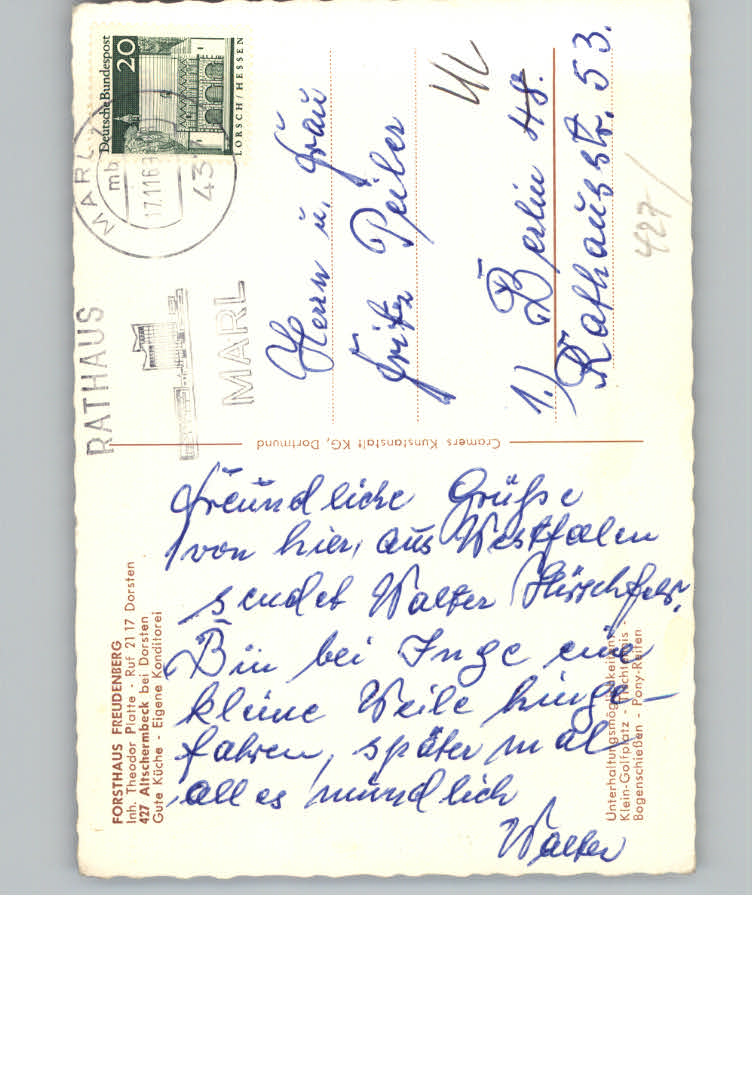 FORSTHAUS FREUDENBERG
Inh. Theodor Platte - Ruf 21 17 Dorsten
427 Altschermbeck bei Dorsten
Gute Küche - Eigene Konditorei
Freundliche Grüße
von hier, aus Westfalen
sendet Walter
Bin bei Inge eine
kleine Weile hinge-
fahren, später mal
alles mündlich
Walter
Unterhaltungsmöglichkeiten:
Klein-Golfplatz -
Bogenschießen - Pony-Reiten
Cramers Kunstanstalt KG, Dortmund
RATHAUS
MARL
MARL
mb
17.11.67
43
Deutsche Bundespost
20
LORSCH/HESSEN
Herrn u. Frau
Fritz Peiler
1.) Berlin 48.
Rathausstr. 53.
427/